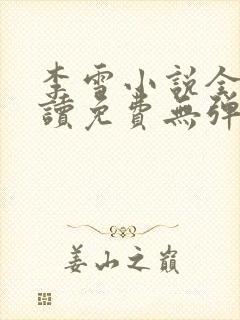 李雪小說全
讀免費無彈
姜山之巔